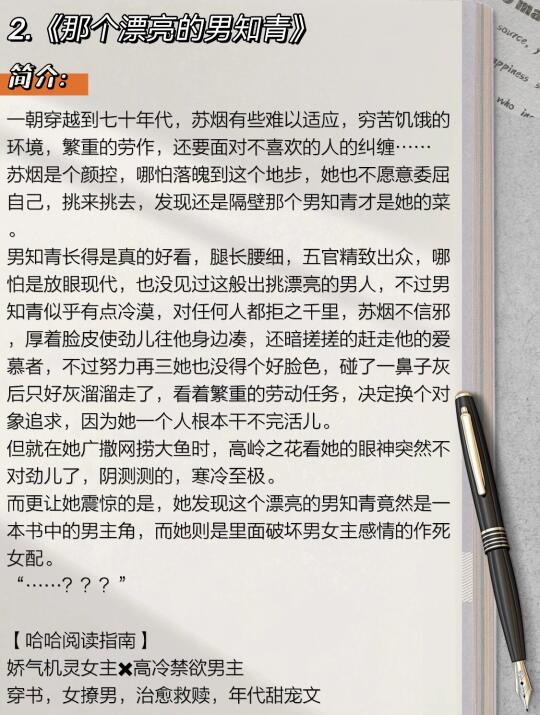 2.《那个漂亮的男知青》
简介：
一朝穿越到七十年代，苏烟有些难以适应，穷苦饥饿的
环境，繁重的劳作，还要面对不喜欢的人的纠缠……
苏烟是个颜控，哪怕落魄到这个地步，她也不愿意委屈
自己，挑来挑去，发现还是隔壁那个男知青才是她的菜
。
男知青长得是真的好看，腿长腰细，五官精致出众，哪
怕是放眼现代，也没见过这般出挑漂亮的男人，不过男
知青似乎有点冷漠，对任何人都拒之千里，苏烟不信邪
，厚着脸皮使劲儿往他身边凑，还暗搓搓的赶走他的爱
慕者，不过努力再三她也没得个好脸色，碰了一鼻子灰
后只好灰溜溜走了，看着繁重的劳动任务，决定换个对
象追求，因为她一个人根本干不完活儿。
但就在她广撒网捞大鱼时，高岭之花看她的眼神突然不
对劲儿了，阴测测的，寒冷至极。
而更让她震惊的是，她发现这个漂亮的男知青竟然是一
本书中的男主角，而她则是里面破坏男女主感情的作死
女配。
“……？？？”
【哈哈阅读指南】
娇气机灵女主✖高冷禁欲男主
穿书，女撩男，治愈救赎，年代甜宠文
source,
happiness s
who